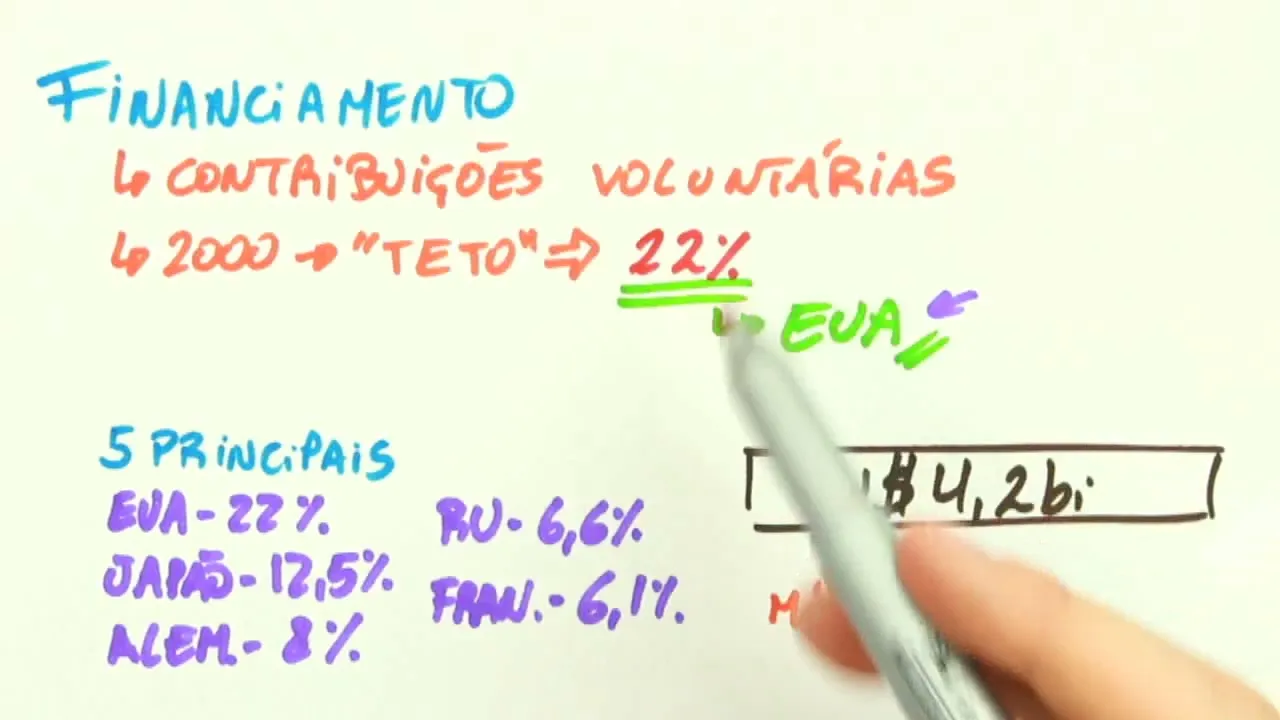 FINANCIAMENTO
↳ CONTRIBUIÇÕES VOLUNTÁRIAS
↳ 2000 → "TETO" ⇒ 22%
↳ EUA
5 PRINCIPAIS
EUA - 22%.
JAPÃO - 12,5%
ALEM. - 8%
RU - 6,6%
FRAN. - 6,1%.
$ 4,2bi